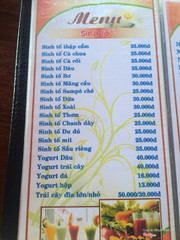 Menu
Sinh tố
Sinh tố thập cẩm 35.000đ
Sinh tố Cà chua 25.000đ
Sinh tố Cà rốt 25.000đ
Sinh tố Dâu 35.000đ
Sinh tố Bơ 35.000đ
Sinh tố Mãng cầu 30.000đ
Sinh tố Sampô chê 30.000đ
Sinh tố Dừa 30.000đ
Sinh tố Xoài 30.000đ
Sinh tố Thơm 25.000đ
Sinh tố Chanh dây 25.000đ
Sinh tố Đu đủ 25.000đ
Sinh tố mít 25.000đ
Sinh tố Sầu riêng 35.000đ
Yogurt Dâu 40.000đ
Yogurt trái cây 40.000đ
Yogurt đá 16.000đ
Yogurt hộp 12.000đ
Trái cây đĩa lớn/nhỏ 50,000/30.000đ